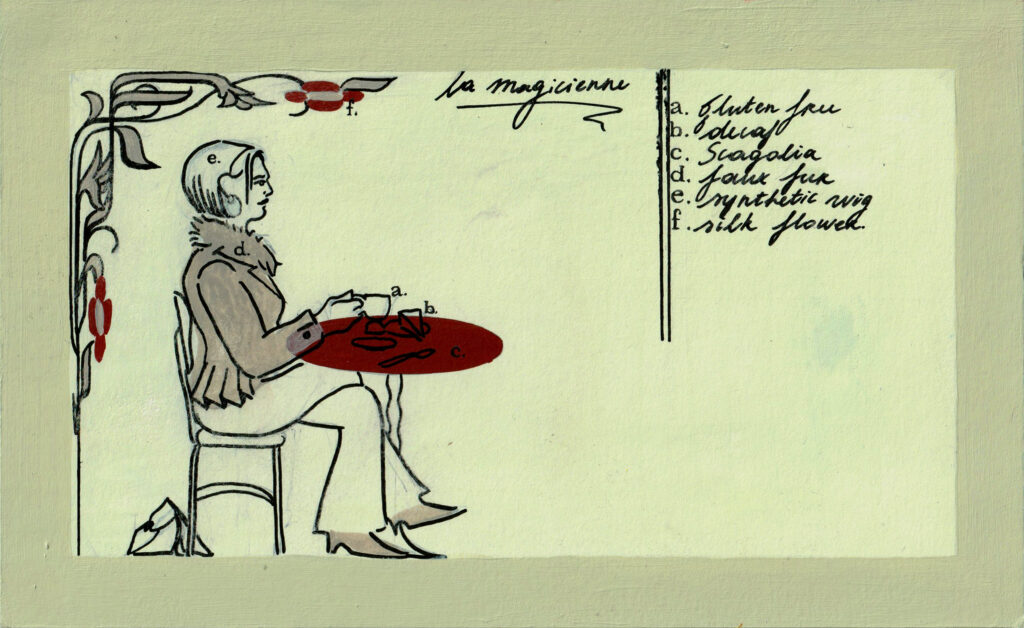 la magicienne
a. Gluten free
b. decaf
c. Scagolia
d. faux fur
e. synthetic wig
f. silk flower.
f.
e.
d.
a.
b.
c.